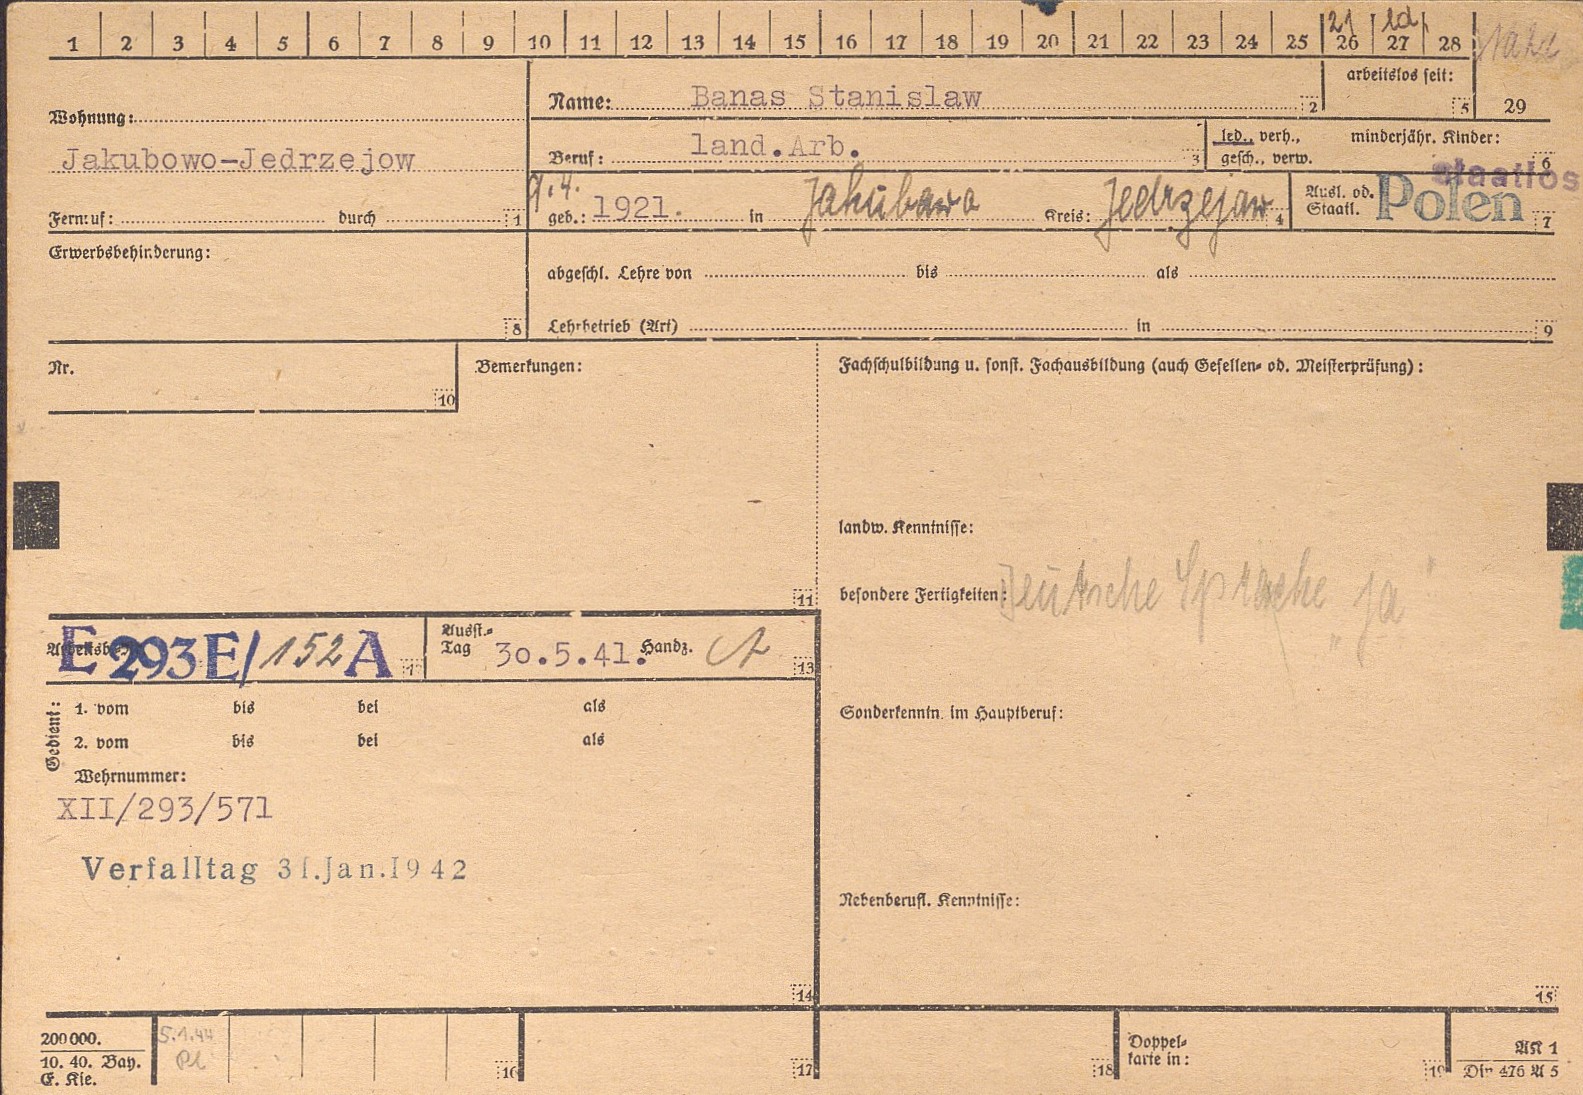 1 2 3 4 5 6 7 8 9 10 11 12 13 14 15 16 17 18 19 20 21 22 23 24 25 26 27 28
21 ld
arbeitslos seit:
Name: Banas Stanislaw 2
5 29
Wohnung:
Jakubowo-Jedrzejow
Beruf: land.Arb. 3
led., verh.,
gesch., verw.
minderjähr. Kinder:
6
staatlos
Fernruf: durch 1
9.4.
geb.: 1921. in Jakubawo Kreis: Jedrzejaw 4
Ausl. od.
Staatl. Polen 7
Erwerbsbehinderung:
8
abgeschl. Lehre von bis als
Lehrbetrieb (Art) in 9
Nr.
10
Bemerkungen:
11
Fachschulbildung u. sonst. Fachausbildung (auch Gesellen- od. Meisterprüfung):
landw. Kenntnisse:
besondere Fertigkeiten: Deutsche Sprache "ja"
E 293E/152A 12
Ausst.-
Tag 30.5.41. Handz. 13
Gedient:
1. vom bis bei als
2. vom bis bei als
Wehrnummer:
XII/293/571
Verfalltag 31.Jan.1942
14
Sonderkenntn. im Hauptberuf:
Nebenberufl. Kenntnisse:
15
200000.
10. 40. Bay.
E. Kie.
5.1.44
16
17
18
Doppel-
karte in:
19
AK 1
Din 476 A 5